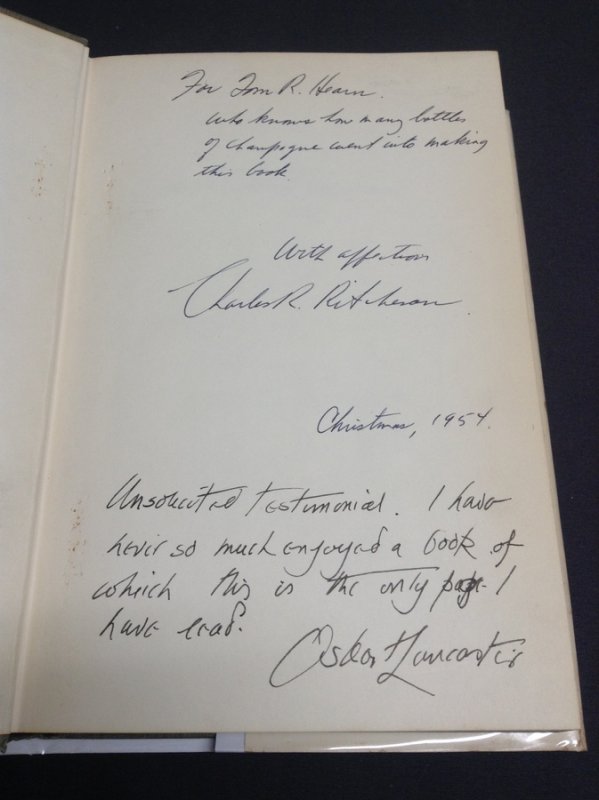 For Tom R. Hearn.
who knows how many bottles
of champagne went into making
this book.
With affection
Charles R. Ritcheson
Christmas, 1954.
Unsolicited testimonial. I have
never so much enjoyed a book of
which this is the only page I
have read.
Lancaster